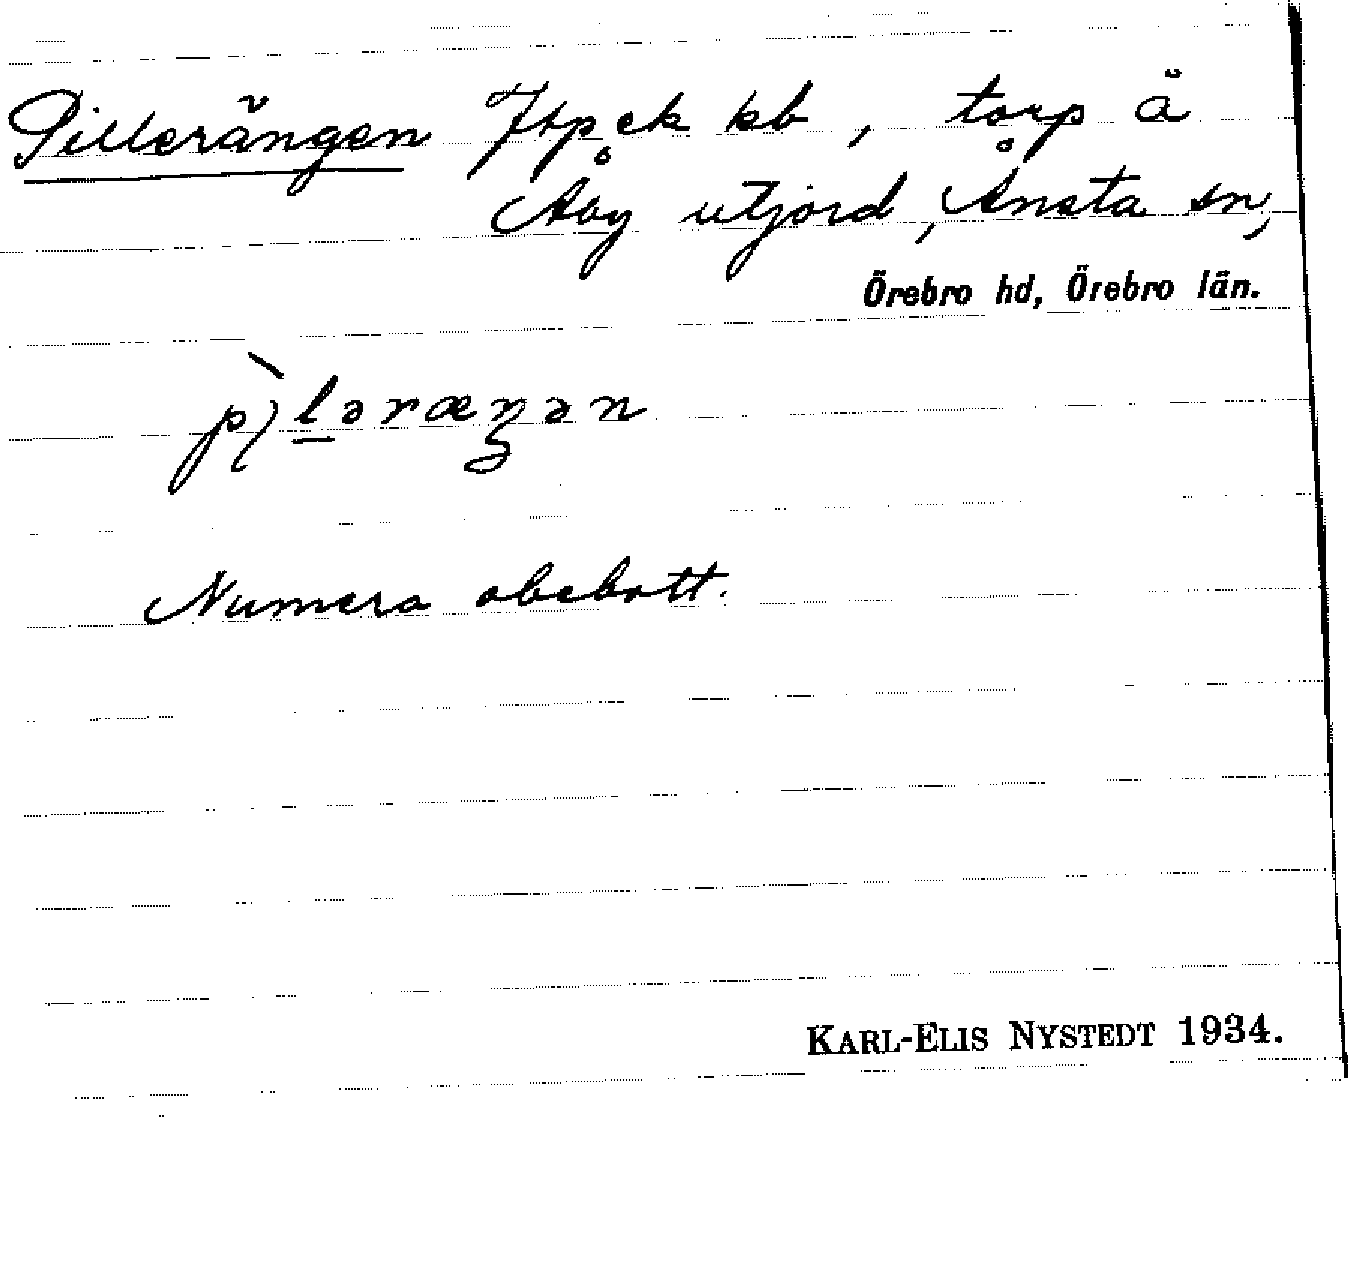 Pillerängen Jtp ek kb, torp å
Åby utjord, Ånsta sn,
Örebro hd, Örebro län.
Numera obebott.
KARL-ELIS NYSTEDT 1934.